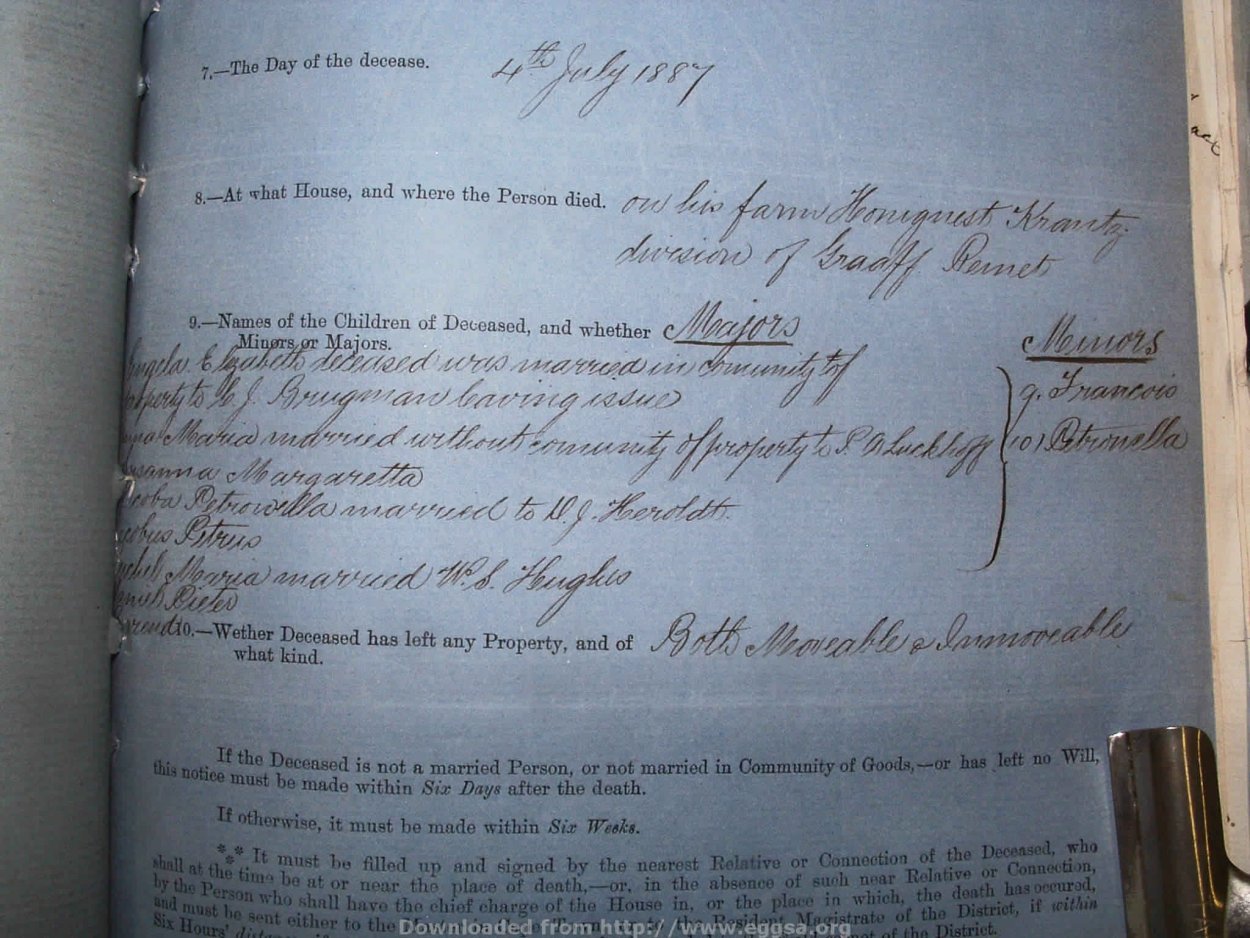 7.—The Day of the decease. 4th July 1887
8.—At what House, and where the Person died. on his farm Honignest Krantz
division of Graaff Reinet
9.—Names of the Children of Deceased, and whether Majors Minors
Minors or Majors.
Elizabeth deceased was married in comunity of
to C. J. Brugman leaving issue 9. Francois
Maria married without comunity of property to P. Luckhoff 10) Petronella
Margaretta
Petronella married to D. J. Heroldt.
Petrus
Maria married W. S. Hughes
Pieter
10.—Wether Deceased has left any Property, and of Both Moveable & Immoveable
what kind.
If the Deceased is not a married Person, or not married in Community of Goods,—or has left no Will,
this notice must be made within Six Days after the death.
If otherwise, it must be made within Six Weeks.
*** It must be filled up and signed by the nearest Relative or Connection of the Deceased, who
shall at the time be at or near the place of death,—or, in the absence of such near Relative or Connection,
by the Person who shall have the chief charge of the House in, or the place in which, the death has occured,
and must be sent either to the Resident Magistrate of the District, if within
Six Hours' of the District.
Downloaded from http://www.eggsa.org